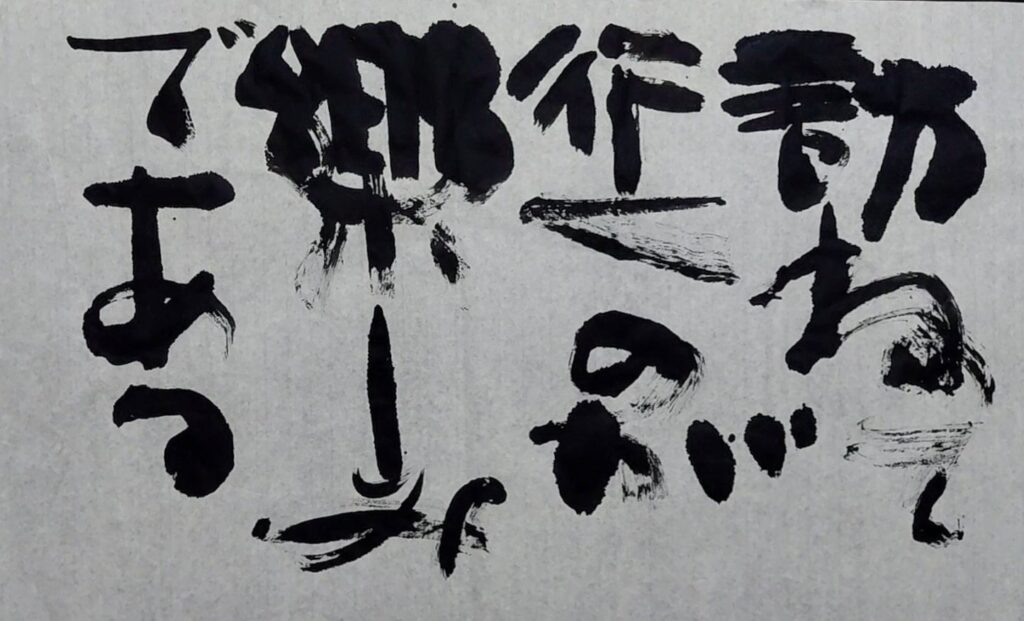 訪ねて
行くのが
樂しみ
である